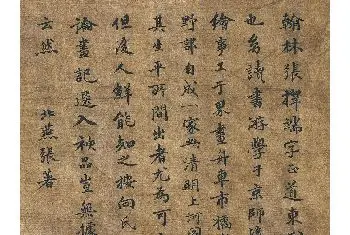 翰林張擇端字正道東
也幼讀書游學于京師
繪事工于界畫舟車市橋
野郭自成一家此清明上河圖
其生平所間出者尤為可
但後人鮮能知之按向氏
論畫記選入神品豈無據
云然 北燕張著